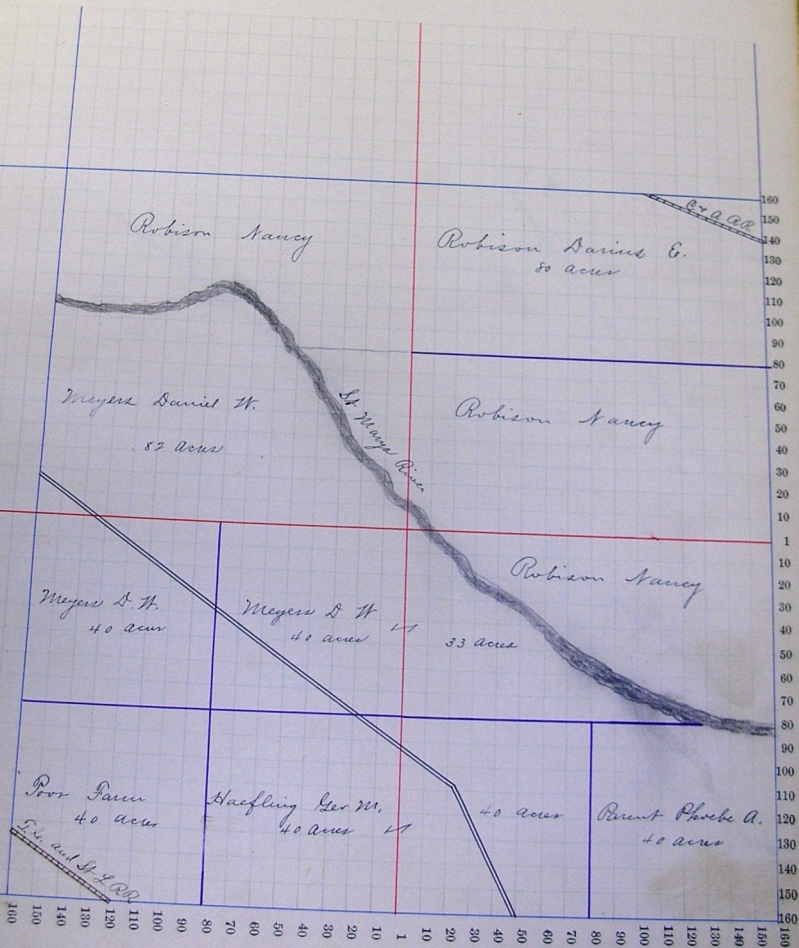 C & A RR
Robison Nancy
Robison Darius E.
80 acres
Meyers Daniel W.
82 acres
St Marys River
Robison Nancy
Robison Nancy
Meyers D. W.
40 acres
Meyers D W
40 acres
33 acres
Poor Farm
40 acres
Haefling Geo M.
40 acres
40 acres
Parent Phoebe A.
40 acres
and St L RR
160
150
140
130
120
110
100
90
80
70
60
50
40
30
20
10
1
10
20
30
40
50
60
70
80
90
100
110
120
130
140
150
160
160 150 140 130 120 110 100 90 80 70 60 50 40 30 20 10 1 10 20 30 40 50 60 70 80 90 100 110 120 130 140 150 160